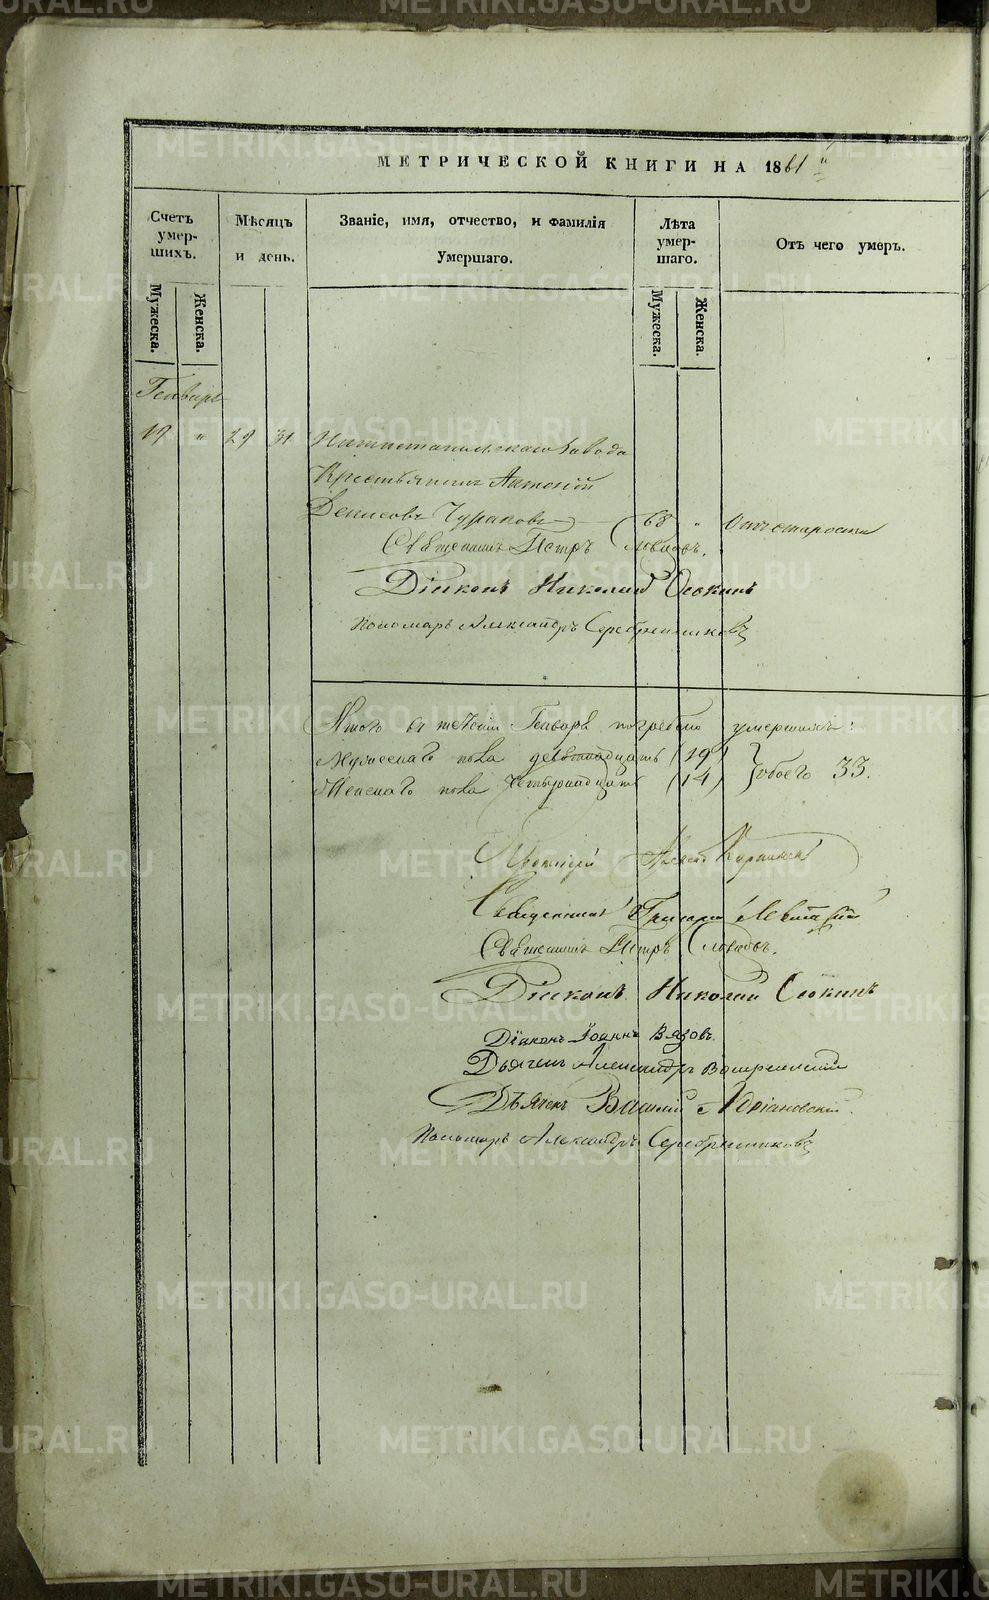 МЕТРИЧЕСКОЙ КНИГИ НА 1861
Счетъ умер-шихъ.
Мѣсяцъ и день.
Званіе, имя, отчество, и фамилія Умершаго.
Лѣта умер-шаго.
Отъ чего умеръ.
Мужеска.
Женска.
Мужеска.
Женска.
Генварь
19 " 29 31 Нижнетагильскаго Завода
Крестьянинъ Антоній
Денисовъ Чураковъ 68 " Отъ старости
Священникъ Петръ Словцовъ.
Діаконъ Николай Осокинъ
Пономарь Александръ Серебренниковъ
Итого въ теченіи Генваря погребено умершихъ:
Мужескаго пола девятнадцать (19)
Женскаго пола четырнадцать (14) } обоего 33.
Протоіерей
Священникъ Григорій Левитскій
Священникъ Петръ Словцовъ.
Діаконъ Николай Осокинъ
Діаконъ Іоаннъ Вязовъ.
Дьячекъ Александръ
Дьячекъ Василий Адріановскій.
Пономарь Александръ Серебренниковъ
METRIKI.GASO-URAL.RU